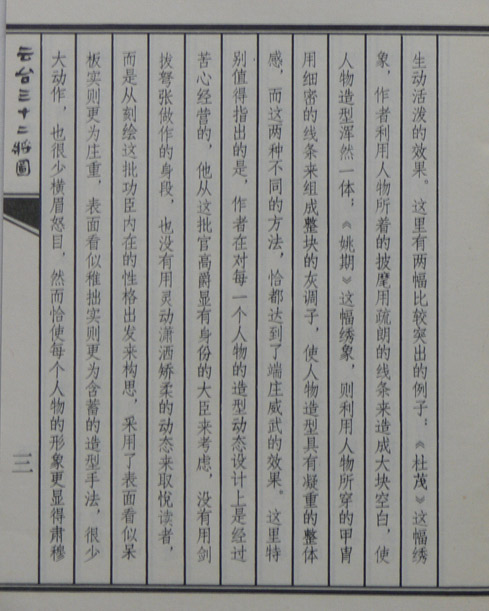 生动活泼的效果。这里有两幅比较突出的例子：《杜茂》这幅绣
象，作者利用人物所着的披麾用疏朗的线条来造成大块空白，使
人物造型浑然一体；《姚期》这幅绣象，则利用人物所穿的甲胄
用细密的线条来组成整块的灰调子，使人物造型具有凝重的整体
感，而这两种不同的方法，恰都达到了端庄威武的效果。这里特
别值得指出的是，作者在对每一个人物的造型动态设计上是经过
苦心经营的，他从这批官高爵显有身份的大臣来考虑，没有用剑
拔弩张做作的身段，也没有用灵动潇洒矫柔的动态来取悦读者，
而是从刻绘这批功臣内在的性格出发来构思，采用了表面看似呆
板实则更为庄重，表面看似稚拙实则更为含蓄的造型手法，很少
大动作，也很少横眉怒目，然而恰使每个人物的形象更显得肃穆
云台三十二将图
三